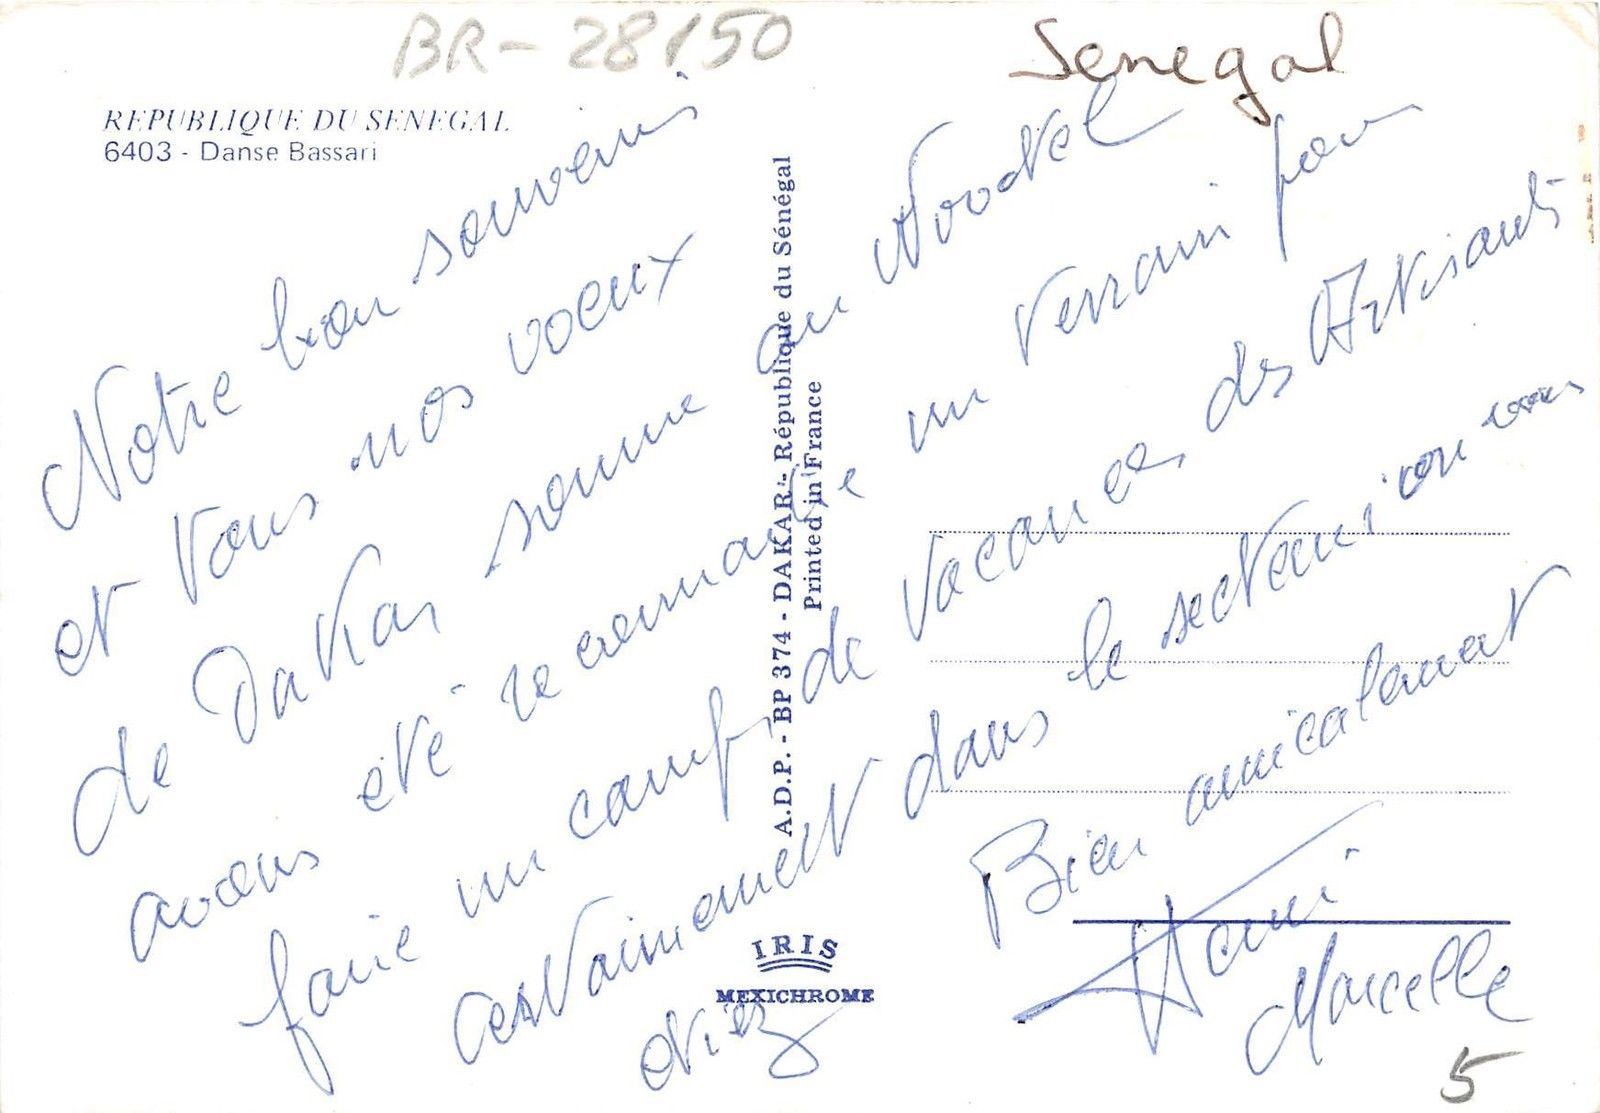 BR-28150
Senegal
REPUBLIQUE DU SENEGAL
6403 - Danse Bassari
Notre bon souvenir
et tous nos voeux
de Dakar somme au
avons été reconnaitre un terrain pour
faire un camp de vacances des Artisants
certainement dans le secteur ou vous
étiez
Bien amicalement
Marcelle
A.D.P. - BP 374 - DAKAR - République du Sénégal
Printed in France
IRIS
MEXICHROME
5